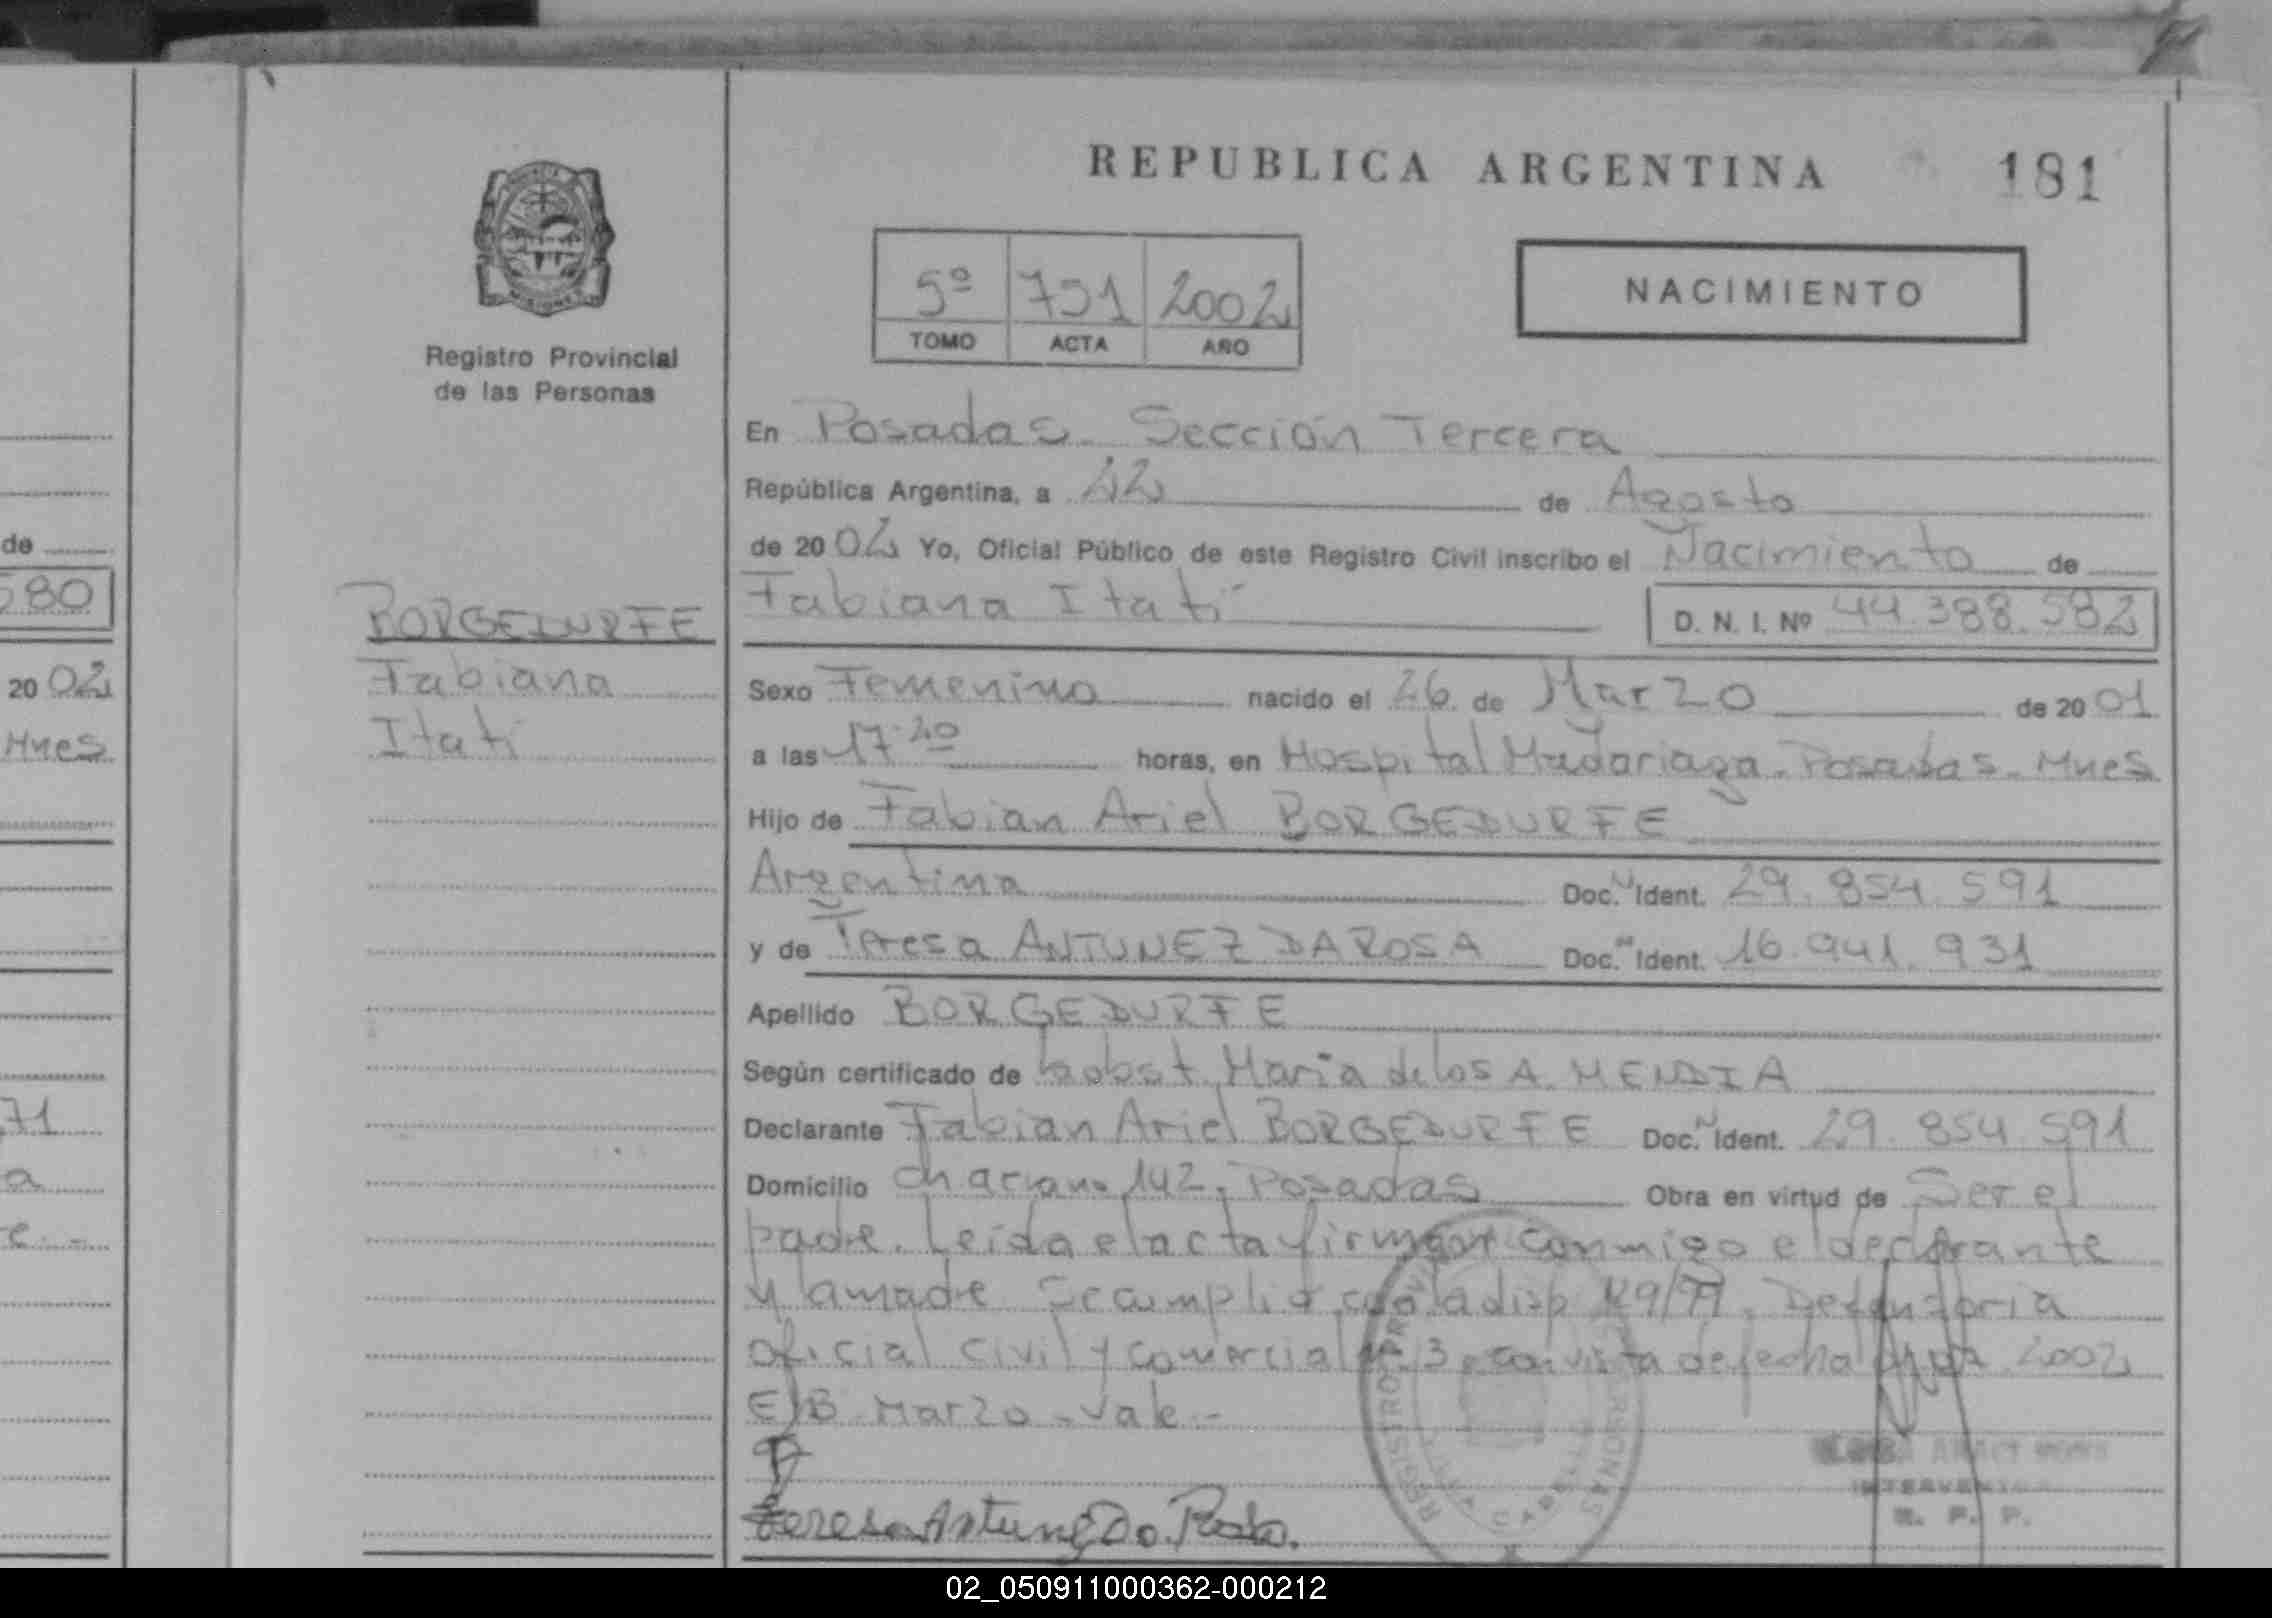 REPUBLICA ARGENTINA
181
5º 791 2002
TOMO ACTA AÑO
NACIMIENTO
Registro Provincial
de las Personas
En Posadas - Sección Tercera
República Argentina, a 22 de Agosto
de 2002 Yo, Oficial Público de este Registro Civil inscribo el Nacimiento de
Fabiana Itatí
D. N. I. Nº 44.388.582
BORGEDURFE
Fabiana
Itatí
Sexo Femenino nacido el 26 de Marzo de 2001
a las 17.20 horas, en Hospital Madariaga - Posadas - Mnes
Hijo de Fabian Ariel BORGEDURFE
Argentina Doc. Ident. 29.854.591
y de Teresa ANTUNEZ DA ROSA Doc. Ident. 16.941.931
Apellido BORGEDURFE
Según certificado de Maria de los A. MENDIA
Declarante Fabian Ariel BORGEDURFE Doc. Ident. 29.854.591
Domicilio 142, Posadas Obra en virtud de Ser el
padre. Leída el acta firman conmigo el declarante
y la madre Se cumplió con la disp Defensoria
oficial civil y comercial 3 con vista de fecha 2002
E/B Marzo - Vale -
Teresa Antunez Da Rosa.
R. P. P.
de
580
2002
Mnes
71
a
02_050911000362-000212